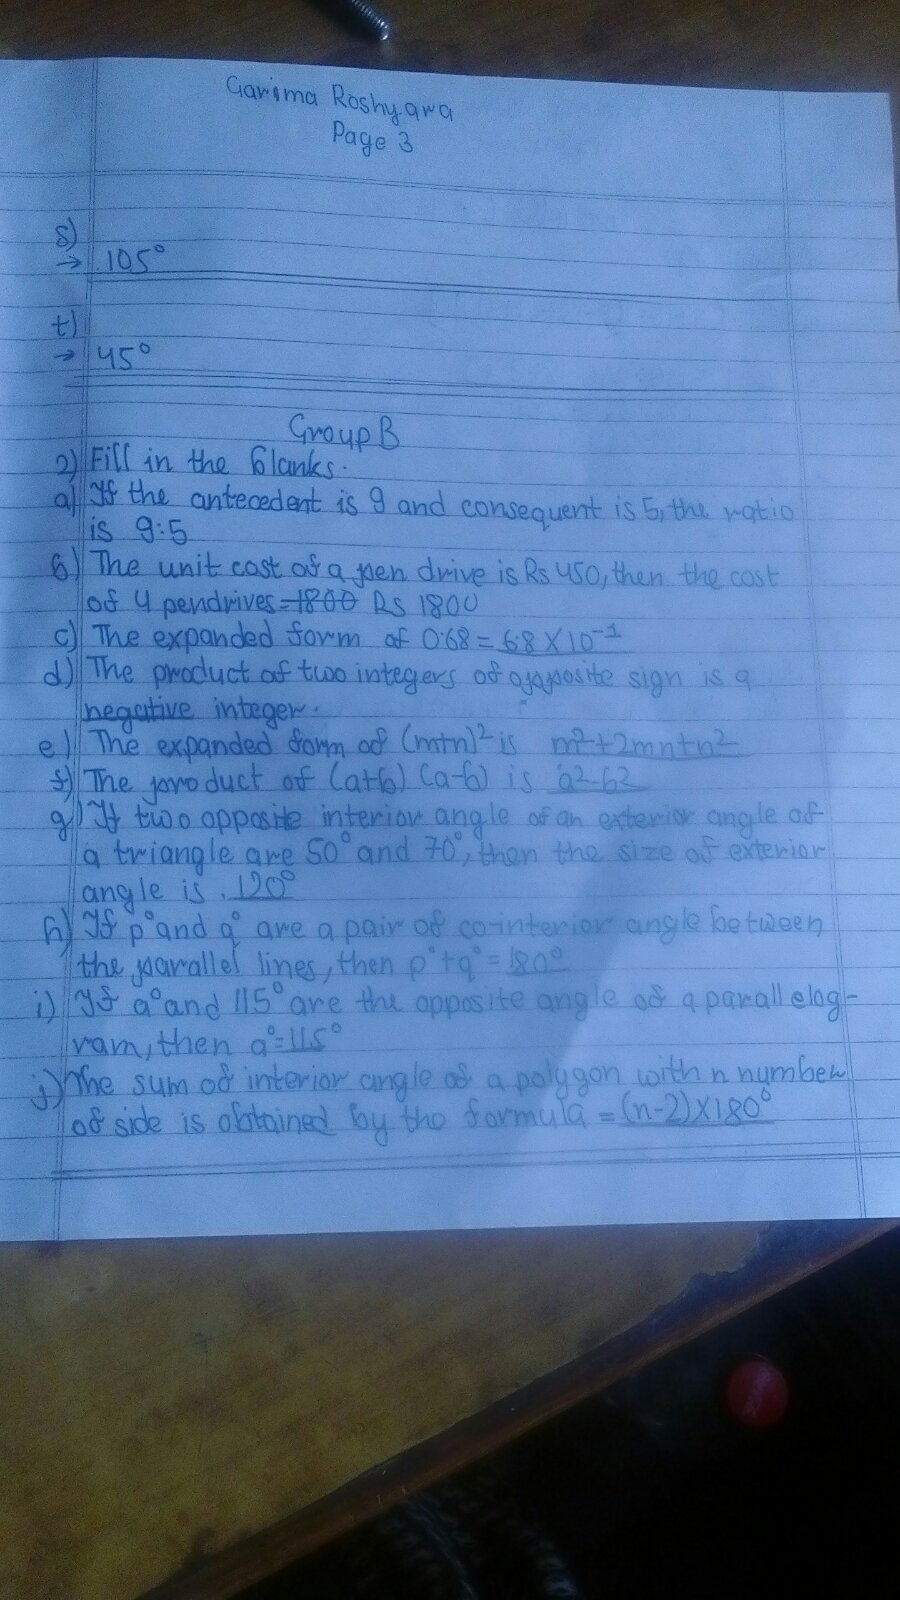 Garima Roshyara
Page 3
s)
→ 105°
t)
→ 45°
Group B
2) Fill in the blanks.
a) If the antecedent is 9 and consequent is 5, the ratio
is 9:5
b) The unit cost of a pen drive is Rs 450, then the cost
of 4 pendrives = 1800 Rs 1800
c) The expanded form of 0.68 = 6.8 × 10⁻¹
d) The product of two integers of opposite sign is a
negative integer.
e) The expanded form of (m+n)² is m²+2mn+n²
f) The product of (a+b) (a-b) is a²-b²
g) If two opposite interior angle of an exterior angle of
a triangle are 50° and 70°, then the size of exterior
angle is . 120°
h) If p° and q° are a pair of co-interior angle between
the parallel lines, then p°+q° = 180°
i) If a° and 115° are the opposite angle of a parallelog-
ram, then a°=115°
j) The sum of interior angle of a polygon with n number
of side is obtained by the formula = (n-2)×180°